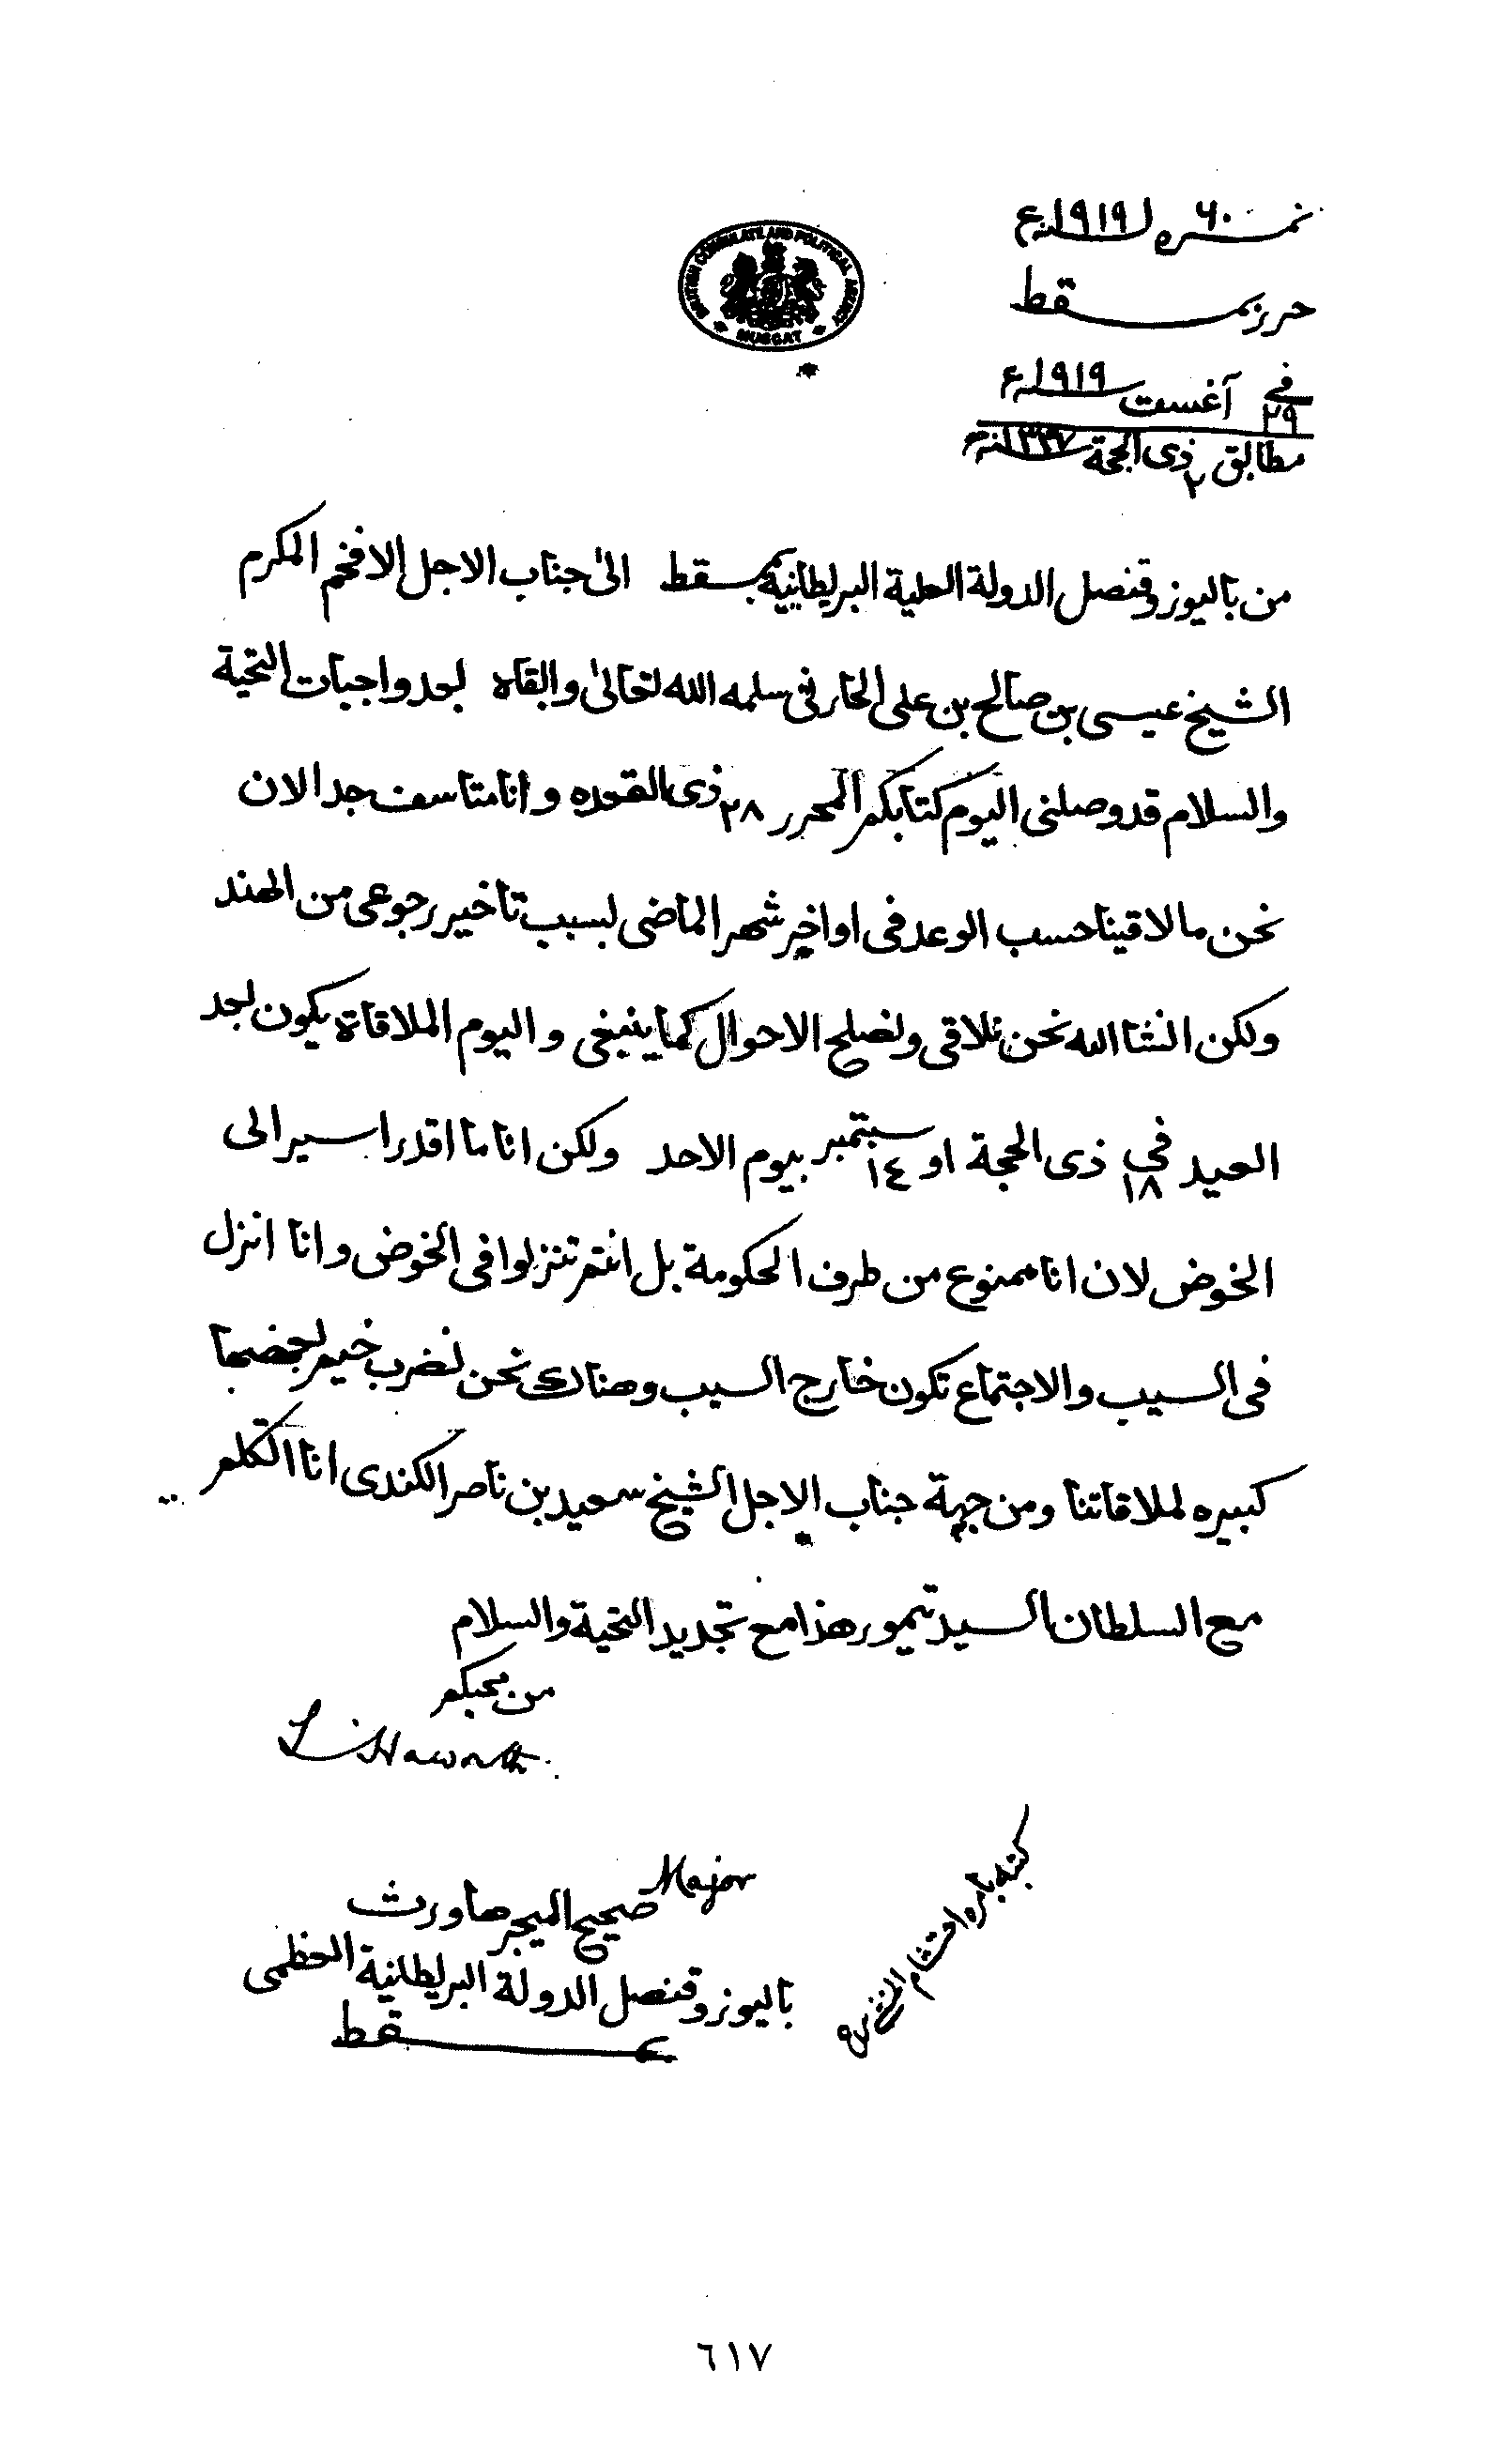 نمره ٦٠ لسنه ١٩١٩ع
BRITISH CONSULATE AND POLITICAL AGENCY
MUSCAT
حرر بمسقط
فى ٢٩ آغست سنه ١٩١٩ع
مطابق ٢ ذى الحجة سنه ١٣٣٧
من باليوز وقنصل الدولة العلية البريطانية بمسقط الىٰ جناب الاجل الافخم المكرم
الشيخ عيسى بن صالح بن على الحارثى سلمه الله تعالىٰ وابقاه بعد واجبات التحية
والسلام قد وصلنى اليوم كتابكم المحرر ٢٨ ذى القعده و انا متاسف جدا لان
نحن ما لاقينا حسب الوعد فى اواخر شهر الماضى بسبب تاخير رجوعى من الهند
ولكن انشا الله نحن نلاقى ونصلح الاحوال كما ينبغى و اليوم الملاقاة يكون بعد
العيد فى ١٨ ذى الحجة او ١٤ سبتمبر بيوم الاحد ولكن انا ما اقدر اسير الى
الخوض لان انا ممنوع من طرف الحكومة بل انتم تنزلوا فى الخوض و انا انزل
فى السيب والاجتماع تكون خارج السيب وهناك نحن نضرب خيم بعضها
كبيره لملاقاتنا ومن جهة جناب الاجل الشيخ سعيد بن ناصر الكندى انا اتكلم
مع السلطان السيد تيمور هذا مع تجديد التحية والسلام
من محبكم
L. Haworth
Major
صحيح الميجر هاورث
باليوز وقنصل الدولة البريطانية العظمى
بمسقط
كتبه بامره
٦١٧